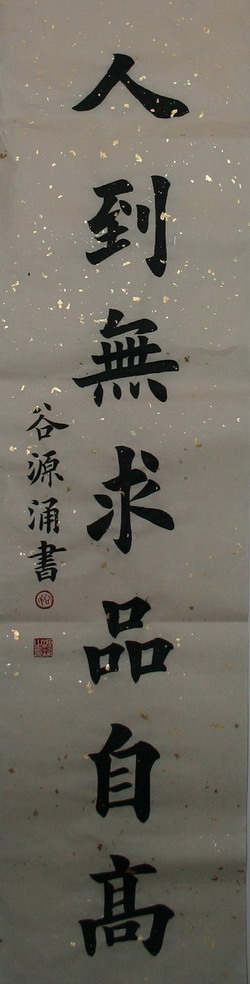 人到無求品自高
谷源涌書